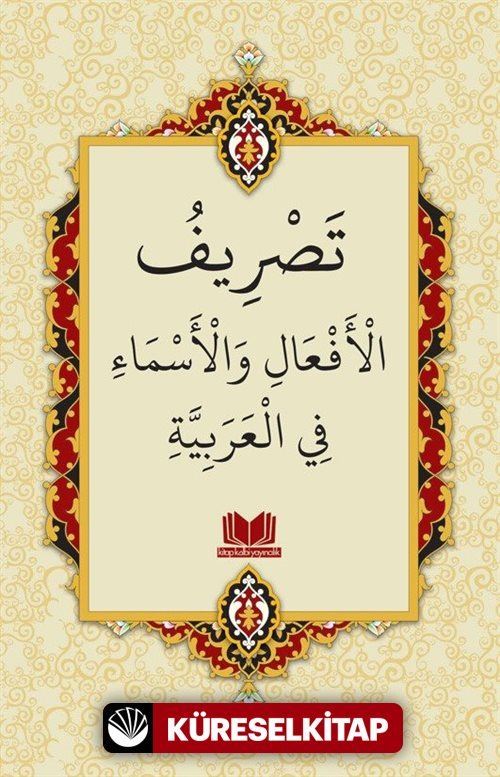 تَصْرِيفُ
الْأَفْعَالِ وَالْأَسْمَاءِ
فِي الْعَرَبِيَّةِ
kitap kalbi yayıncılık
KÜRESELKİTAP